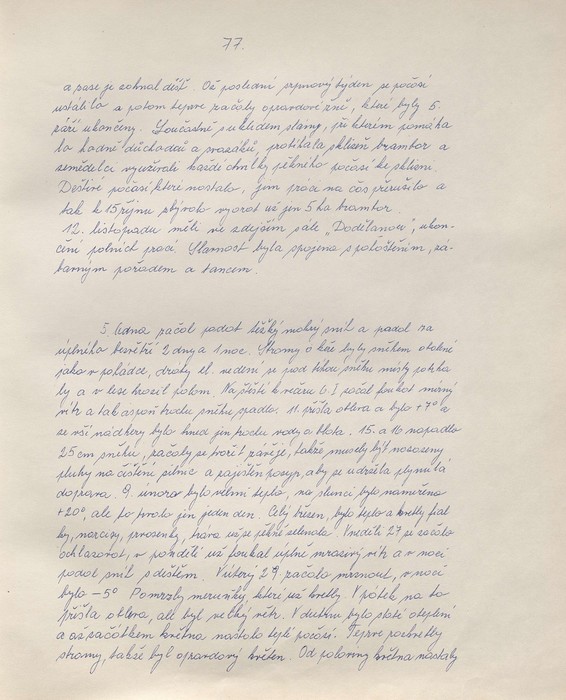 77.
a zase je zahnal déšť. Až poslední srpnový týden se počasí
ustálilo a potom teprve začaly opravdové žně, které byly 5.
září ukončeny. Současně s úklidem slamy, při kterém pomáha
lo hodně důchodců a svazáků, probíhala sklizeň brambor a
zemědělci využívali každé chvilky pěkného počasí ke sklizni.
Deštivé počasí které nastalo, jim práci na čas přerušilo a
tak k 15 říjnu zbývalo vyorat už jen 5 ha brambor.
12. listopadu měli ve zdejším sále „Dodělanou", ukon-
čení polních prací. Slavnost byla spojena s pohoštěním, zá-
bavným pořadem a tancem.
5. ledna začal padat těžký mokrý sníh a padal za
úplného bezvětří 2 dny a 1 noc. Stromy a keře byly sněhem obalené
jako v pohádce, dráty el. vedení se pod tíhou sněhu místy potrha
ly a v lese hrozil polom. Na štěstí k večeru 6. I začal foukat mírný
vítr a tak aspoň trochu sněhu spadlo. 11. přišla obleva a bylo +7° a
ze vší nádhery bylo hned jen trochu vody a blata. 15. a 16 napadlo
25 cm sněhu, začaly se tvořit závěje, takže musely být nasazeny
pluhy na čištění silnic a zajištěn posyp, aby se udržela plynulá
doprava. 9. února bylo velmi teplo, na slunci bylo naměřeno
+20°, ale to trvalo jen jeden den. Celý březen, bylo teplo a kvetly fial
ky, narcisy, prvosenky, tráva už se pěkně zelenala. V neděli 27. se začalo
ochlazovat, v pondělí už foukal úplně mrazivý vítr a v noci
padal sníh s deštěm. V úterý 29. začalo mrznout, v noci
bylo -5° Pomrzly meruňky, které už kvetly. V pátek na to
přišla obleva, ale byl velký vítr. V dubnu bylo stálé oteplení
a až začátkem května nastalo teplé počasí. Teprve rozkvetly
stromy, takže byl opravdový květen. Od poloviny května nastaly